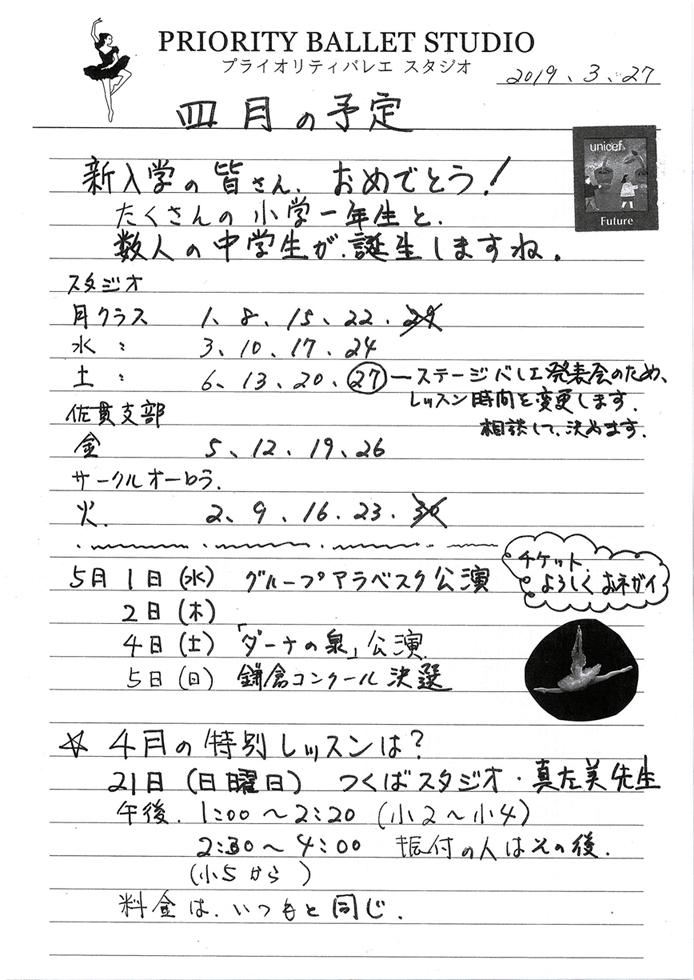 PRIORITY BALLET STUDIO
プライオリティバレエ スタジオ
2019、3、27
四月の予定
unicef
Future
新入学の皆さん、おめでとう!
たくさんの小学一年生と、
数人の中学生が、誕生しますね。
スタジオ
月クラス 1、8、15、22、29
水 : 3、10、17、24
土 : 6、13、20、27 ―ステージバレエ発表会のため、
レッスン時間を変更します。
相談して、決めます。
佐貫支部
金 5、12、19、26
サークルオーロラ
火. 2、9、16、23、30
5月1日(水) グループアラベスク公演
チケット、
よろしくおネガイ
2日(木)
4日(土) 「ダーナの泉」公演
5日(日) 鎌倉コンクール決選
☆ 4月の特別レッスンは?
21日(日曜日) つくばスタジオ・真左美先生
午後. 1:00〜2:20 (小2〜小4)
2:30〜4:00 振付の人はその後.
(小5から )
料金は、いつもと同じ.